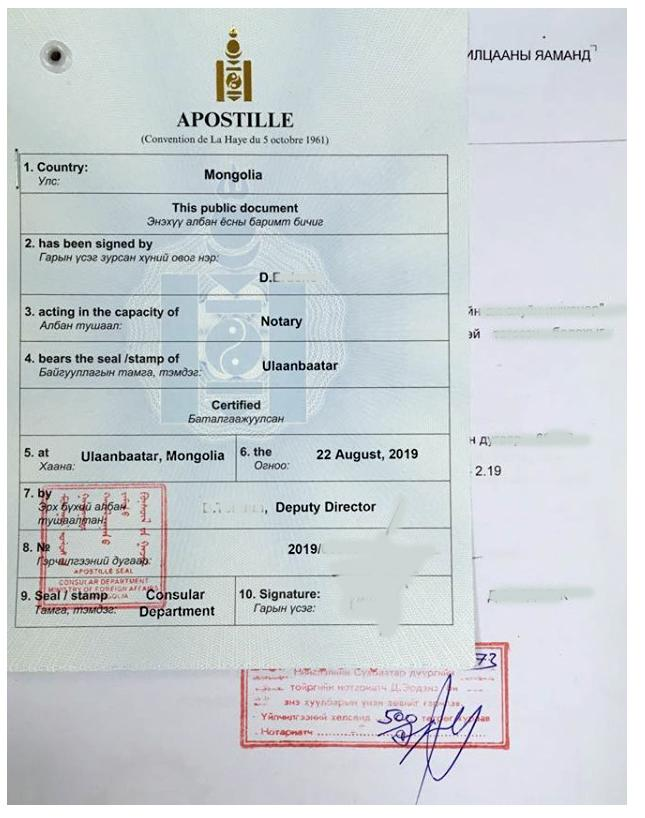 ИЛЦААНЫ ЯАМАНД
APOSTILLE
(Convention de La Haye du 5 octobre 1961)
1. Country:
Улс:
Mongolia
This public document
Энэхүү албан ёсны баримт бичиг
2. has been signed by
Гарын үсэг зурсан хүний овог нэр:
D.E
3. acting in the capacity of
Албан тушаал:
Notary
4. bears the seal /stamp of
Байгууллагын тамга, тэмдэг:
Ulaanbaatar
Certified
Баталгаажуулсан
5. at
Хаана:
Ulaanbaatar, Mongolia
6. the
Огноо:
22 August, 2019
7. by
Эрх бүхий албан
тушаалтан:
Deputy Director
8. №
Гэрчилгээний дугаар:
2019/
APOSTILLE SEAL
CONSULAR DEPARTMENT
MINISTRY OF FOREIGN AFFAIRS
9. Seal / stamp
Тамга, тэмдэг:
Consular
Department
10. Signature:
Гарын үсэг:
йн
эй
н
2.19
73
Сүхбаатар дүүргийн
тойргийн нотариатч
энэ хуулбарын үнэн зөвийг гэрчлэв.
Үйлчилгээний хөлсөнд 500 төгрөг хураав
Нотариатч